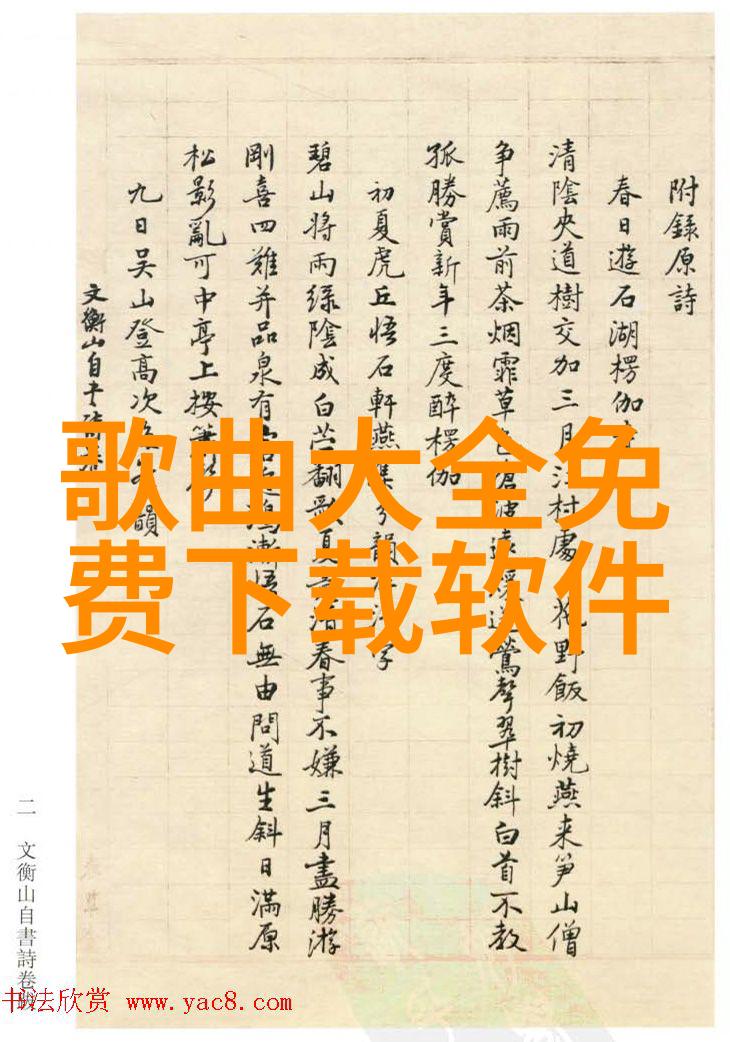 附錄原詩
春日遊石湖楞伽
清陰夾道樹交加三月江村處花野飯初燒燕来笋山僧
争薦雨前茶烟霏草色波遠鶯聲翠樹斜白首不教
孤勝賞新年三度醉楞伽
初夏虎丘悟石軒燕集分韻字
碧山將雨緑陰成白苎翻歌夏春事不嫌三月盡勝游
剛喜四難并品泉有悟石無由問道生斜日滿原
松影亂可中亭上按
九日吴山登高次韻
文衡山自書
二 文衡山自書詩卷
歌曲大全免
费下载软件
书法欣赏 www.yac8.com